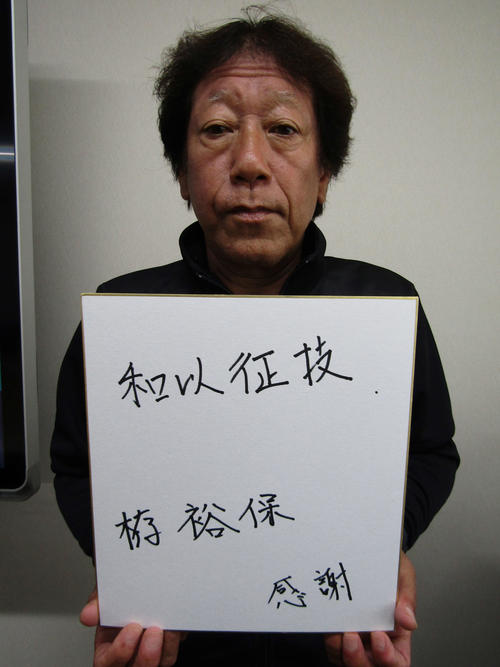 和以征技
栫裕保
感謝